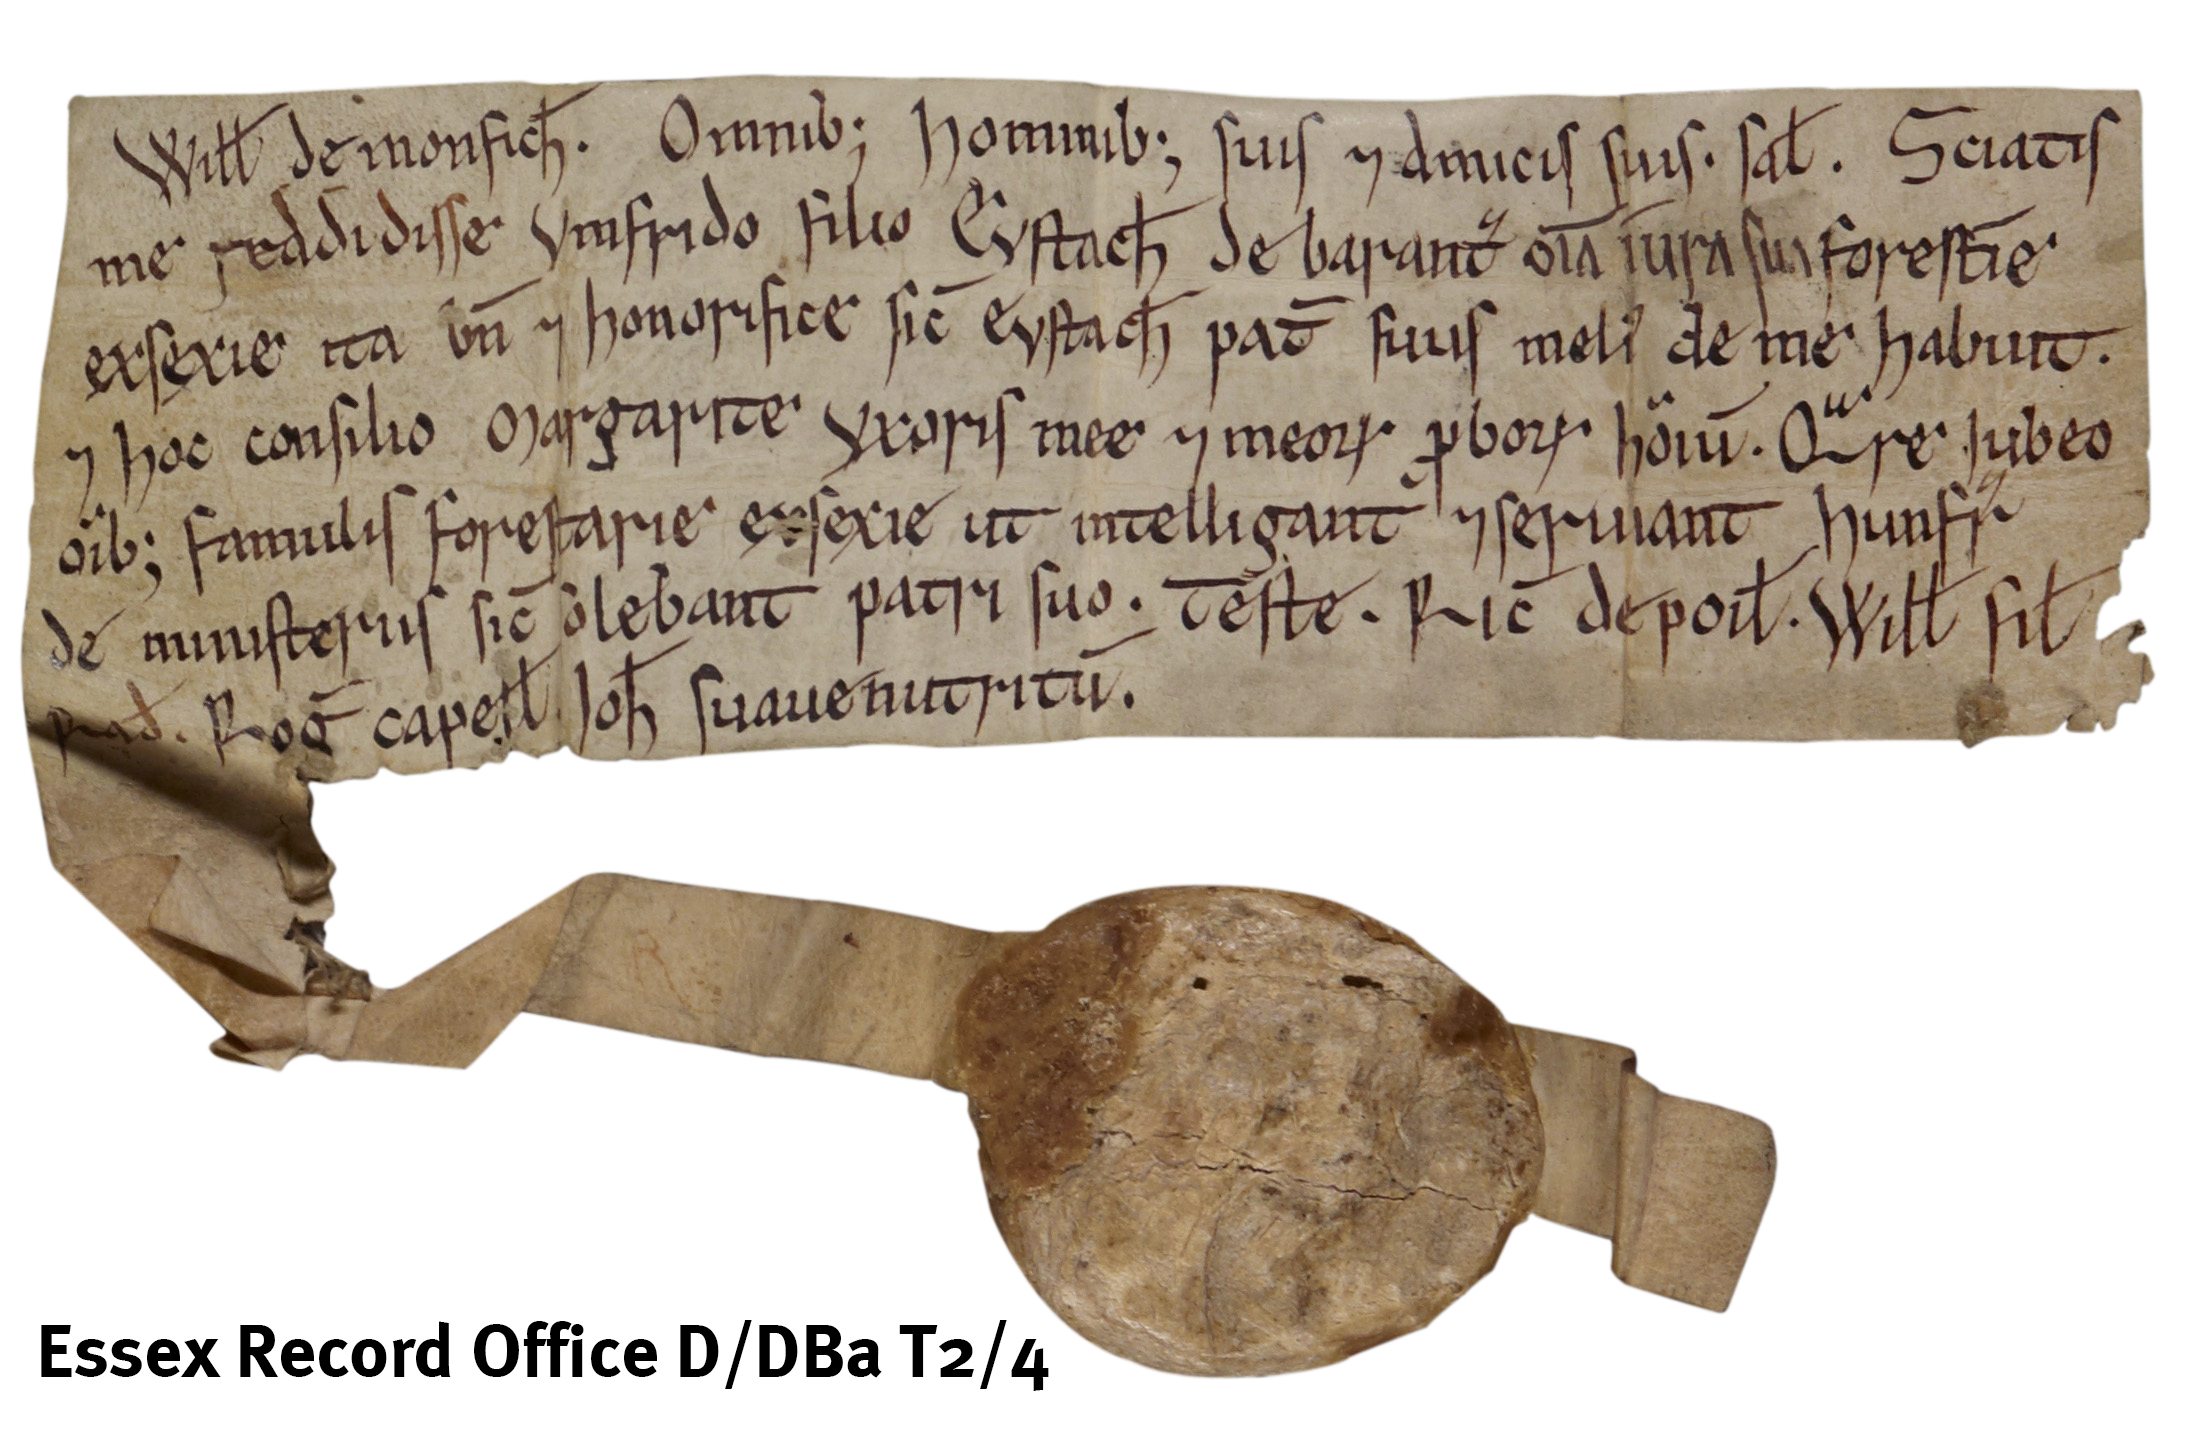 Willł de monfich̄. Omnib; hominib; suis ⁊ amicis suis. sał. Sciatis
me reddidisse Vmfrido filio Evstach̄ de barant oīa iura sua forestīe
exsexie ita bn̄ ⁊ honorifice sic̄ evstach̄ pat̄ suus meli' de me habuit.
⁊ hoc consilio Margarite vxoris mee ⁊ meoꝝ ꝓboꝝ hōiū. Qre iubeo
oīb; famulis forestarie exsexie ut intelligant ⁊ seruiant hunfr
de ministeriis sic̄ solebant patri suo. Teste. Ric̄ de poił. Willł fił
Rad̄. Roḡ capełł. Joh̄ suauenutritū.
Essex Record Office D/DBa T2/4